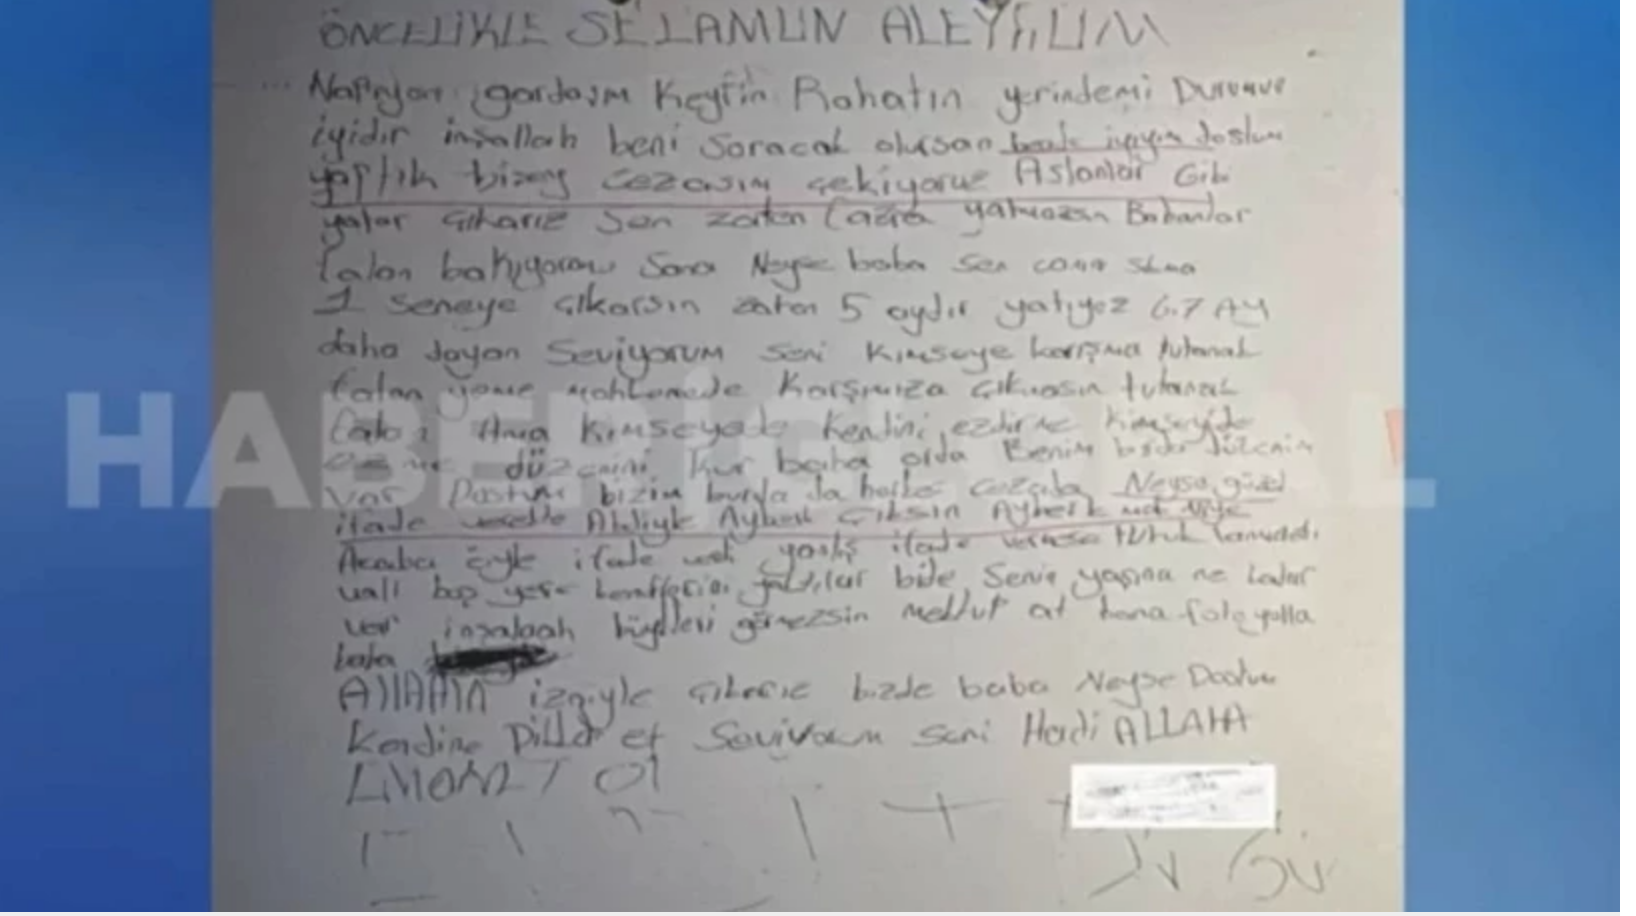 ÖNCELİKLE SELAMUN ALEYKUM
Napıyon gardaşım Keyfin Rahatın yerindemi Durumun
iyidir inşallah beni soracak olursan bende iyiyim dostum
yaptık bizeng cezasını çekiyoruz Aslanlar Gibi
yatar çıkarız sen zaten fazla yatmazsın Babanlar
falan bakıyorsa sana Neyse baba sen canın sıkma
1 seneye çıkarsın zaten 5 aydır yatıyoz 6.7 AY
daha dayan Seviyorum seni Kimseye karışma tutanak
falan yeme mahkemede Karşımıza çıkmasın tutanak
falan Ama Kimseyede kendini ezdirme kimseyide
ezme düzenini kur baba orda Benim burda düzenim
var Dostum bizim burda da herkes cezada Neyse güzel
ifade verdi Ahliyle Ayberk çıksın Ayberk niye
Acaba öyle ifade verdi yanlış ifade verse tutuklanmazdı
boş yere yaktılar bide Senin yaşına ne kadar
var inşalaah büyükleri görmezsin mektup at bana foto yolla
baba
ALLAHIN izniyle çıkarız bizde baba Neyse Dostum
Kendine Dikkat et Seviyorum seni Hadi ALLAHA
EMANET Ol
HABER GLOBAL